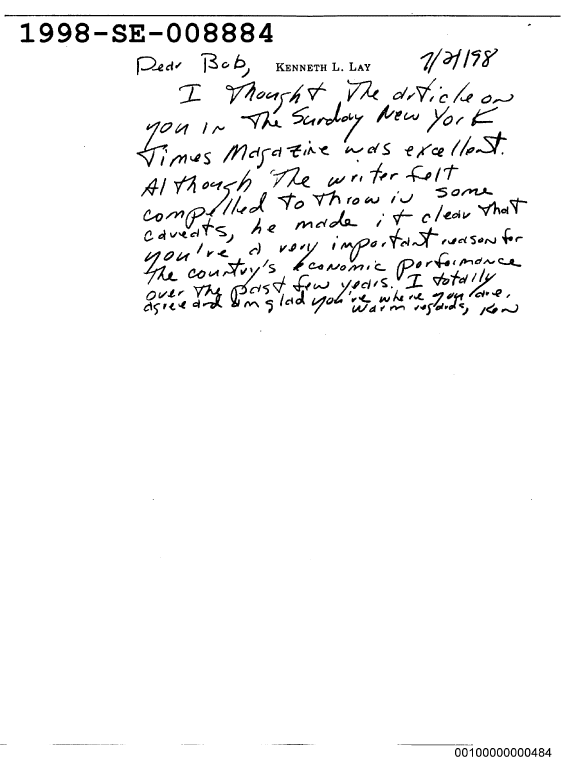 1998-SE-008884
Dear Bob,
KENNETH L. LAY
7/2/98
I thought the article on
you in the Sunday New York
Times Magazine was excellent.
Although the writer felt
compelled to throw in some
caveats, he made it clear that
you're a very important reason for
the country's economic performance
over the past few years. I totally
agree and am glad you're where you are.
Warm regards, Ken
00100000000484